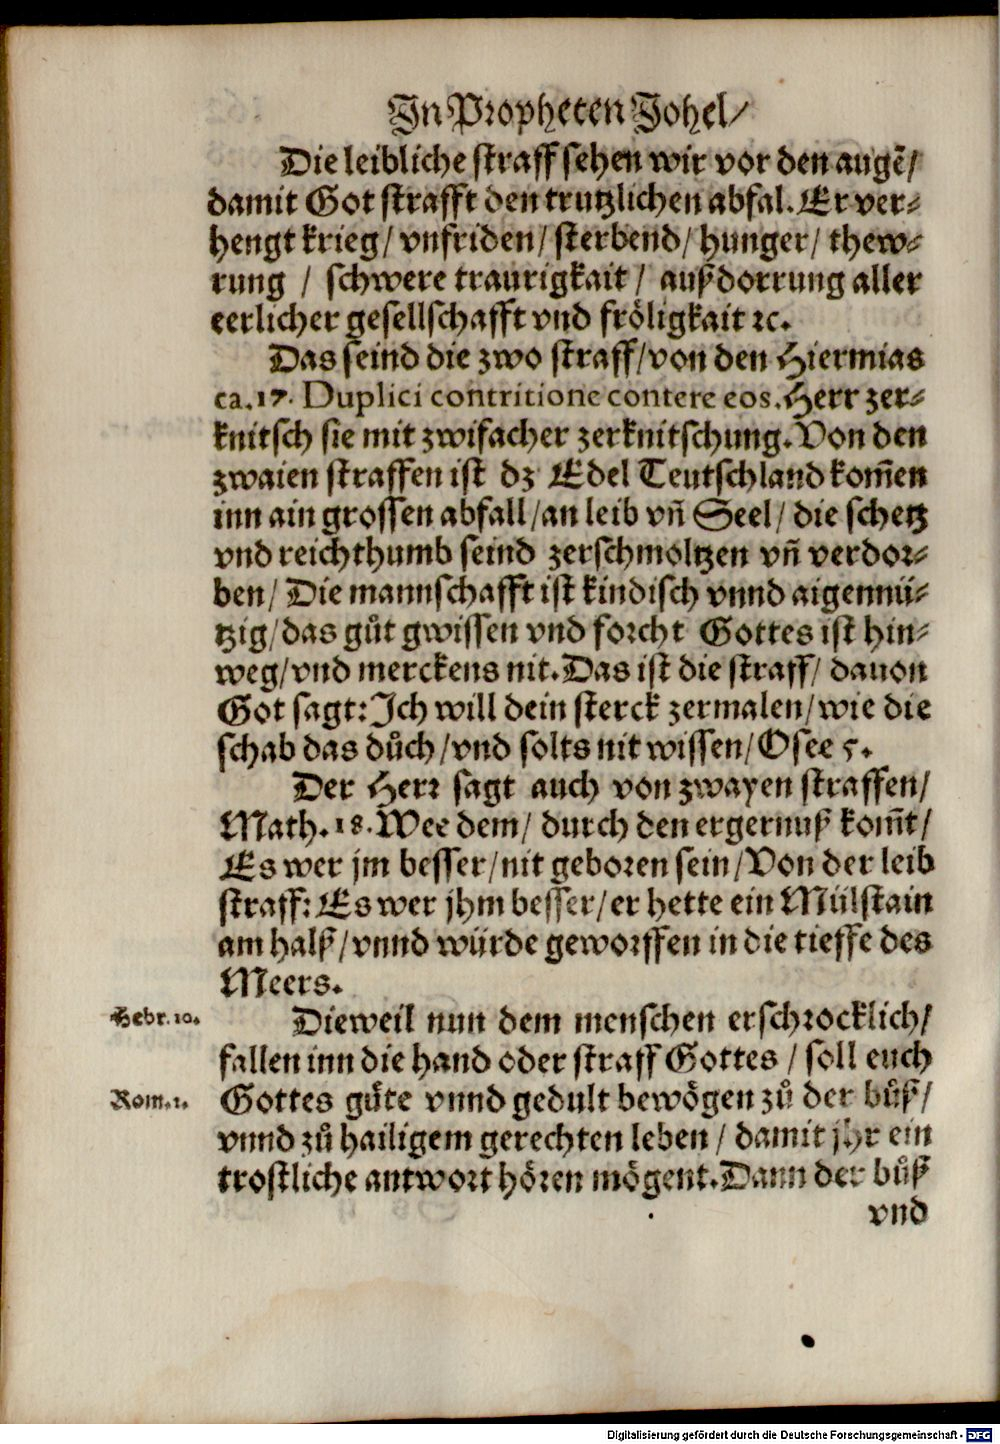 In Propheten Johel/
Die leibliche straff sehen wir vor den augē/
damit Got strafft den trutzlichen abfal. Er ver⸗
hengt krieg/ vnfriden/ sterbend/ hunger/ thew⸗
rung / schwere traurigkait / außdorrung aller
eerlicher gesellschafft vnd fröligkait ꝛc.
Das seind die zwo straff/von den Hiermias
ca.17. Duplici contritione contere eos. Herr zer⸗
knitsch sie mit zwifacher zerknitschung. Von den
zwaien straffen ist dz Edel Teutschland kom̄en
inn ain grossen abfall/an leib vn̄ Seel/ die schetz
vnd reichthumb seind zerschmoltzen vn̄ verdor⸗
ben/ Die mannschafft ist kindisch vnnd aigennü⸗
tzig/das gůt gwissen vnd forcht Gottes ist hin⸗
weg/vnd merckens nit. Das ist die straff/ dauon
Got sagt: Ich will dein sterck zermalen/wie die
schab das důch/vnd solts nit wissen/ Osee 5.
Der Herr sagt auch von zwayen straffen/
Math. 18. Wee dem/ durch den ergernuß kom̄t/
Es wer jm besser/nit geboren sein/Von der leib
straff: Es wer jhm besser/er hette ein Mülstain
am halß/vnnd würde geworffen in die tieffe des
Meers.
Hebr. 10.
Dieweil nun dem menschen erschrocklich/
fallen inn die hand oder straff Gottes / soll euch
Rom. 1.
Gottes gůte vnnd gedult bewögen zů der bůß/
vnnd zů hailigem gerechten leben / damit jhr ein
trostliche antwort hören mögent. Dann der bůß
vnd
Digitalisierung gefördert durch die Deutsche Forschungsgemeinschaft - DFG